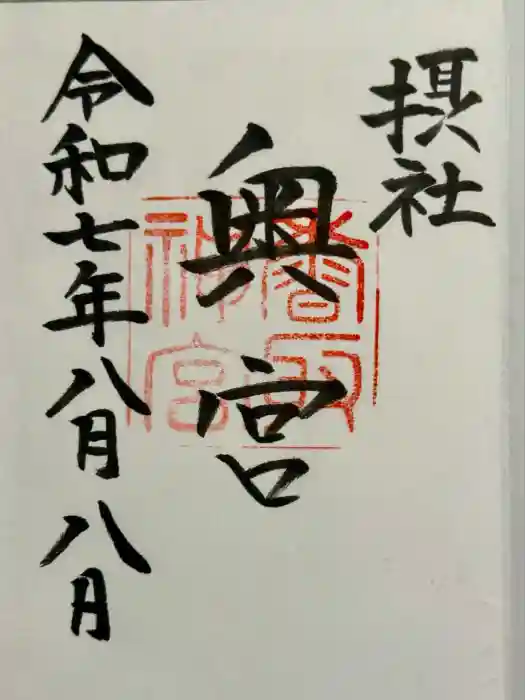 摂社
奥宮
香取
神宮
令和七年八月八月